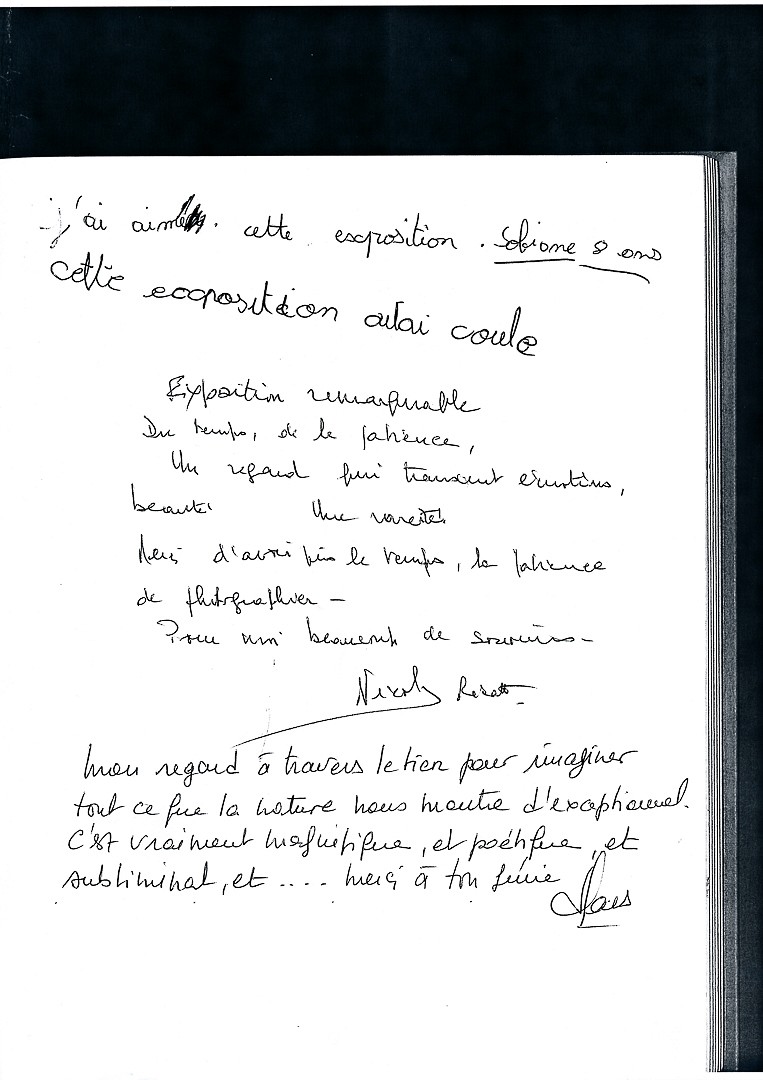 j'ai aimé cette exposition. Sobiane 8 ans
cette exoposition aitai coule
Exposition remarquable
Du temps, de la patience,
Un regard qui transmet émotions,
beauté Une
Merci d'avoir pris le temps, la patience
de photographier –
Pour moi beaucoup de souvenirs –
mon regard à travers le tien pour imaginer
tout ce que la nature nous montre d'exceptionnel.
C'est vraiment magnifique, et poétique, et
subliminal, et .... merci à ton génie